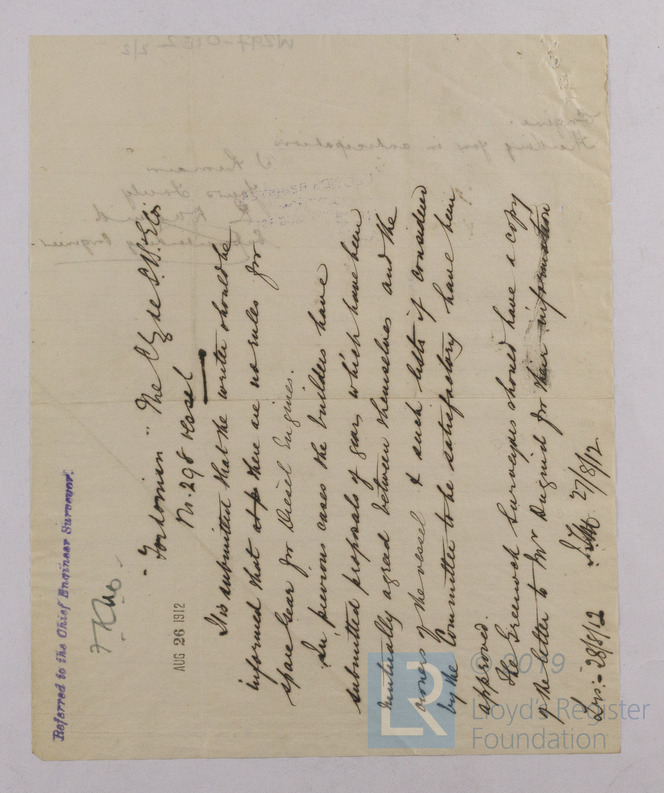 Referred to the Chief Engineer Surveyor.
AUG 26 1912
"Fordonian" The Clyde S.B. & E. Co.
No. 298 vessel
It is submitted that the writer should be
informed that there are no rules for
spare gear for Diesel Engines.
In previous cases the builders have
submitted proposals of gear which have been
mutually agreed between themselves and the
owners of the vessel & such lists if considered
by the Committee to be satisfactory have been
approved.
The Greenock Surveyors should have a copy
of the letter to Mr Duguid for their information
27/8/12
28/8/12
© 2019
LR
Lloyd's Register
Foundation
W297-0182 2/2
Engine.
Thanking you in anticipation
I remain
Yours truly
Engineer